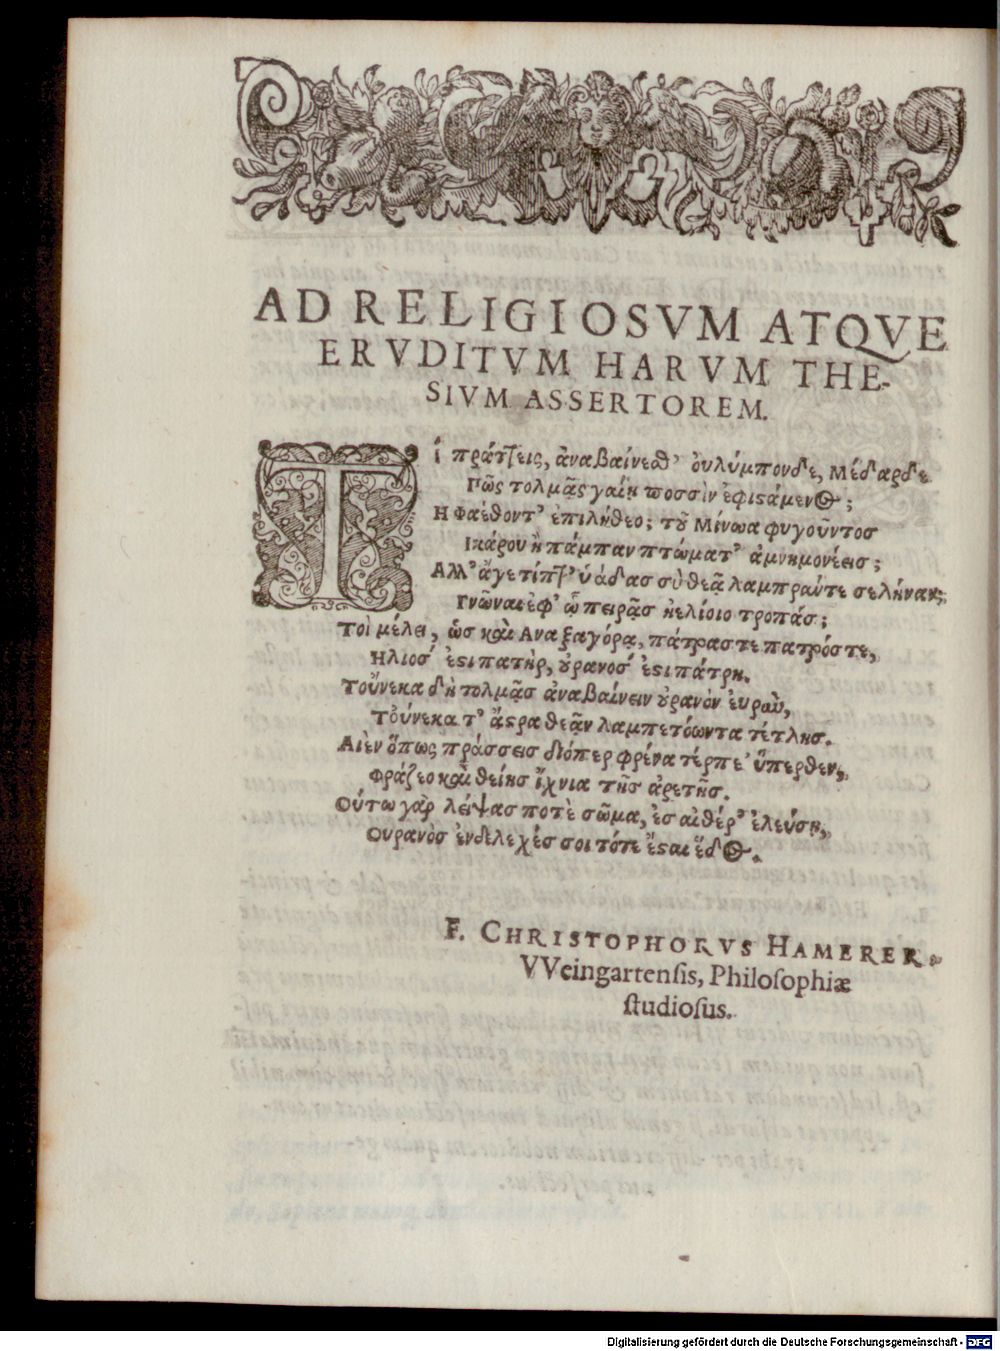 AD RELIGIOSVM ATQVE
ERVDITVM HARVM THE-
SIVM ASSERTOREM.
Τί πράττεις, ἀναβαίνεσθ' ὀυλύμπονδε, Μέδαρδε
Πῶς τολμᾷς γαίῃ ποσσὶν ἐφιςάμενος;
Η Φαέθοντ' ἐπιλήθεο; τοῦ Μίνωα φυγοῦντος
Ικάρου ἢ πάμπαν πτώματ' ἀμνημονέεις;
Αλλ' ἄγε τίπτ' ὑάδας σὺ θεᾷ λαμπράν τε σελήναν;
Γνῶναι ἐφ' ᾧ πειρᾷς ἠελίοιο τροπάς;
Τοὶ μέλει, ὡς καὶ Αναξαγόρᾳ, πάτρας τε πατρός τε,
Ηλιος ἐςι πατὴρ, ὀρανός ἐςι πάτρη.
Τοὔνεκα δὴ τολμᾷς ἀναβαίνειν ὀρανὸν ἐυρὺν,
Τοὔνεκα τ' ἄςρα θεᾷν λαμπετόωντα τέτλης.
Αιὲν ὅπως πράσσεις διόπερ φρένα τέρπε' ὕπερθεν,
Φράζεο καὶ θείης ἴχνια τῆς ἀρετῆς.
Οὕτω γὰρ λείψας ποτὲ σῶμα, ἐς αἰθέρ' ἐλεύσῃ,
Ουρανὸς ἐνδελεχής σοι τότε ἔςαι ἕδος.
F. CHRISTOPHORVS HAMERER
VVeingartensis, Philosophiæ
studiosus.
Digitalisierung gefördert durch die Deutsche Forschungsgemeinschaft - DFG